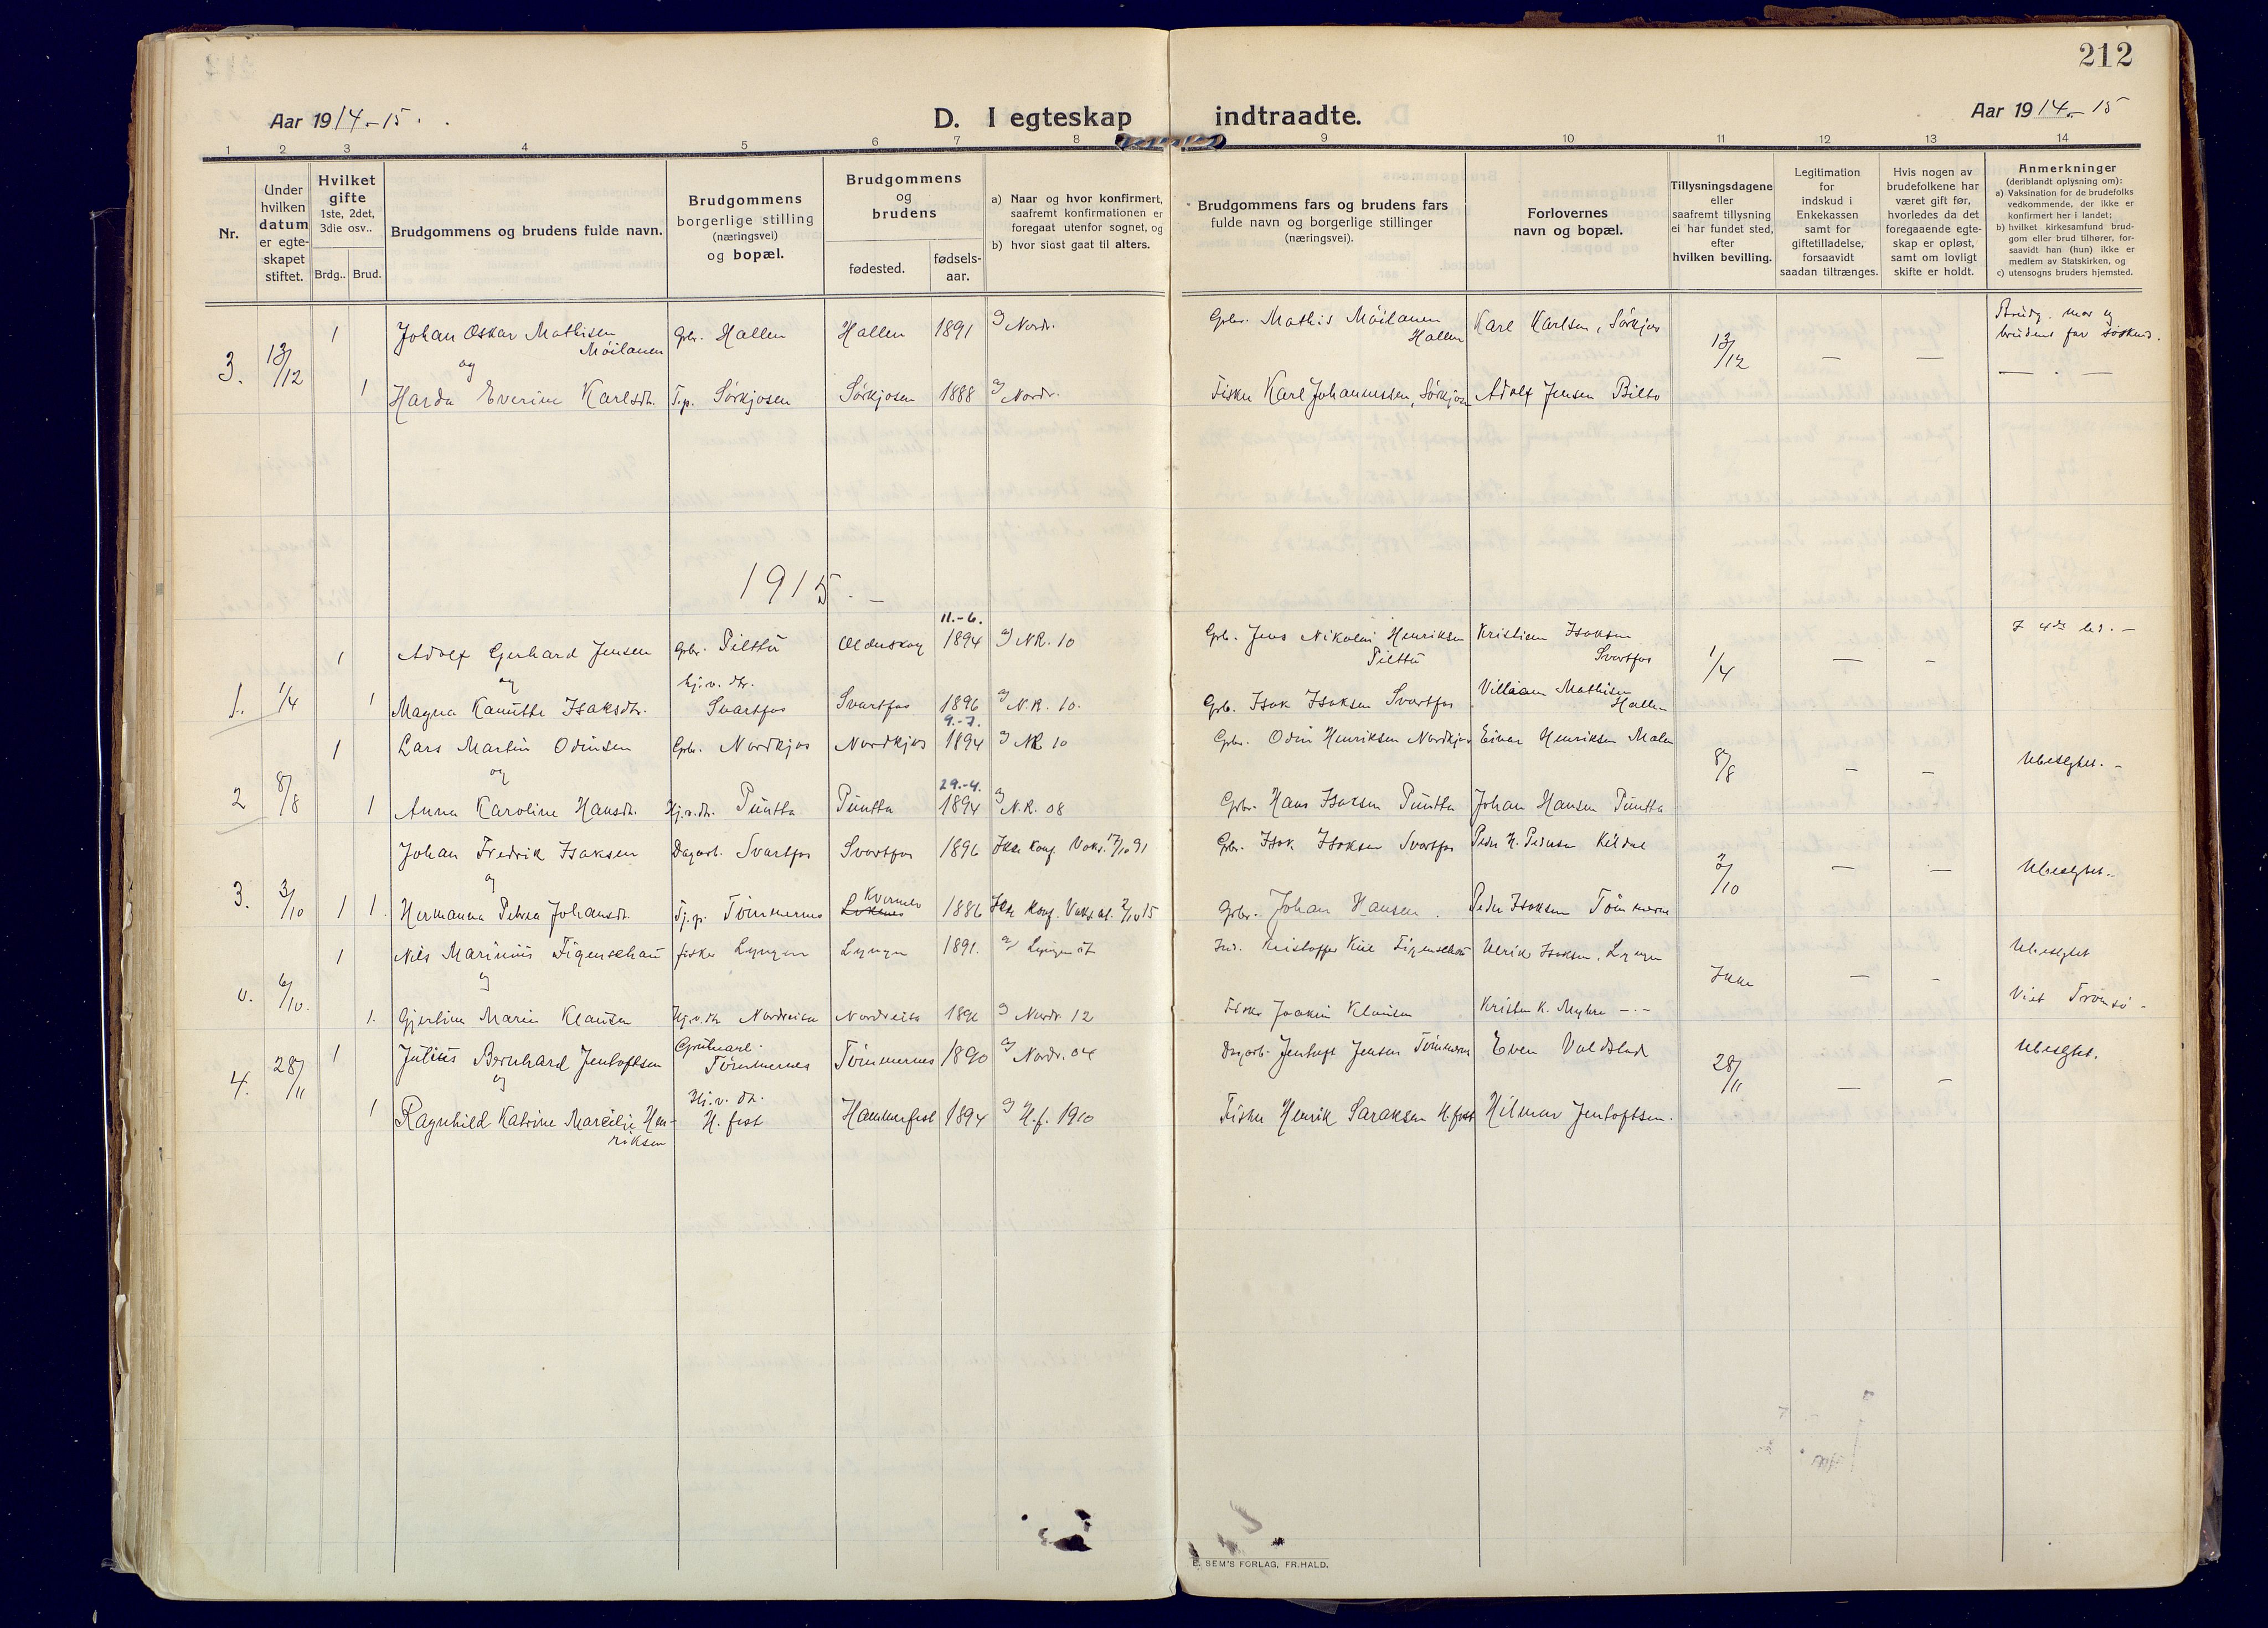 212
Aar 1914-15.
D. I egteskap indtraadte.
Aar 1914-15
1 2 3 4 5 6 7 8 9 10 11 12 13 14
Nr.
Under
hvilken
datum
er egte-
skapet
stiftet.
Hvilket
gifte
1ste, 2det,
3die osv..
Brdg.. Brud.
Brudgommens og brudens fulde navn.
Brudgommens
borgerlige stilling
(næringsvei)
og bopæl.
Brudgommens
og
brudens
fødested.
fødsels-
aar.
a) Naar og hvor konfirmert,
saafremt konfirmationen er
foregaat utenfor sognet, og
b) hvor sidst gaat til alters.
Brudgommens fars og brudens fars
fulde navn og borgerlige stillinger
(næringsvei).
Forlovernes
navn og bopæl.
Tillysningsdagene
eller
saafremt tillysning
ei har fundet sted,
efter
hvilken bevilling.
Legitimation
for
indskud i
Enkekassen
samt for
giftetilladelse,
forsaavidt
saadan tiltrænges.
Hvis nogen av
brudefolkene har
været gift før,
hvorledes da det
foregaaende egte-
skap er opløst,
samt om lovligt
skifte er holdt.
Anmerkninger
(deriblandt oplysning om):
a) Vaksination for de brudefolks
vedkommende, der ikke er
konfirmert her i landet;
b) hvilket kirkesamfund brud-
gom eller brud tilhører, for-
saavidt han (hun) ikke er
medlem av Statskirken, og
c) utensogns bruders hjemsted.
3. 13/12 1 Johan Oskar Mathisen
Møilanen
Gbr. Hallen Hallen 1891 Nordr. Gbr. Mathis Møilanen
Hallen
Karl Karlsen, Sørkjos 13/12 — —
Brudg. mor og
brudens far søskend.
og
1 Harda Everine Karlsdtr. Tp. Sørkjosen Sørkjosen 1888 Nordr. Fisker Karl Johannessen, Sørkjosen Adolf Jensen Bilto
1915. —
11.-6.
1. 1/4 1 Adolf Gerhard Jensen Gbr. Pilttü Oldenskog 1894 NR. 10 Gbr. Jens Nikolai Henriksen
Pilttü
Kristian Isaksen
Svartfos
1/4 — — I 4de led. —
og
1 Magna Kanutte Isaksdtr. Hj.v. dtr.
Svartfos
Svartfos 1896 N.R. 10. Gbr. Isak Isaksen Svartfos Villiam Mathisen
Hallen
9.-7.
2 8/8 1 Lars Martin Odinsen Gbr. Nordkjos Nordkjos 1894 NR 10 Gbr. Odin Henriksen Nordkjos Einar Henriksen Malen 8/8 — — Ubeslgtet. —
og
29.-4.
1 Anna Karoline Hansdtr. Hj.v.dtr. Püntta Püntta 1894 N.R. 08 Gbr. Hans Isaksen Püntta Johan Hansen Püntta
3. 3/10 1 Johan Fredrik Isaksen Dagarb. Svartfos Svartfos 1896 Ikke konf. Vaks. 17/10 91 Gbr. Isak Isaksen Svartfos Peder H. Pedersen Kildal 3/10 — — Ubeslgtet. —
og
1. Hermanna Petrea Johansdtr. Tj.p. Tømmernes Kvænnes 1886 Ikke konf. Vaks. at. 2/10 15 Gbr. Johan Hansen. Peder Isaksen Tømmernes
u. 6/10. 1 Nils Marinius Figenschau fisker Lyngen Lyngen 1891. Lyngen Ind. Kristoffer Kiil Figenschau Ulrik Isaksen, Lyngen Ikke — — Ubeslgtet
og
1. Gjertine Marie Klausen Hj.v.dtr Nordreisa Nordreisa 1896 Nordr. 12 Fisker Joakim Klausen Kristen K. Myhre — Viet Tromsø —
4. 28/11 1 Julius Bernhard Jentoftsen Grubearb.
Tømmernes
Tømmernes 1890 Nordr. 04 Dagarb. Jentoft Jensen Tømmernes Even Voldstad 28/11 — — Ubeslgtet.
og
1 Ragnhild Katrine Marcilie Hen-
riksen
Hj.v. dtr.
H. fest
Hammerfest 1894 H.f. 1910 Fisker Henrik Saraksen H.fest Hilmar Jentoftsen.
E. SEM'S FORLAG, FR.HALD.